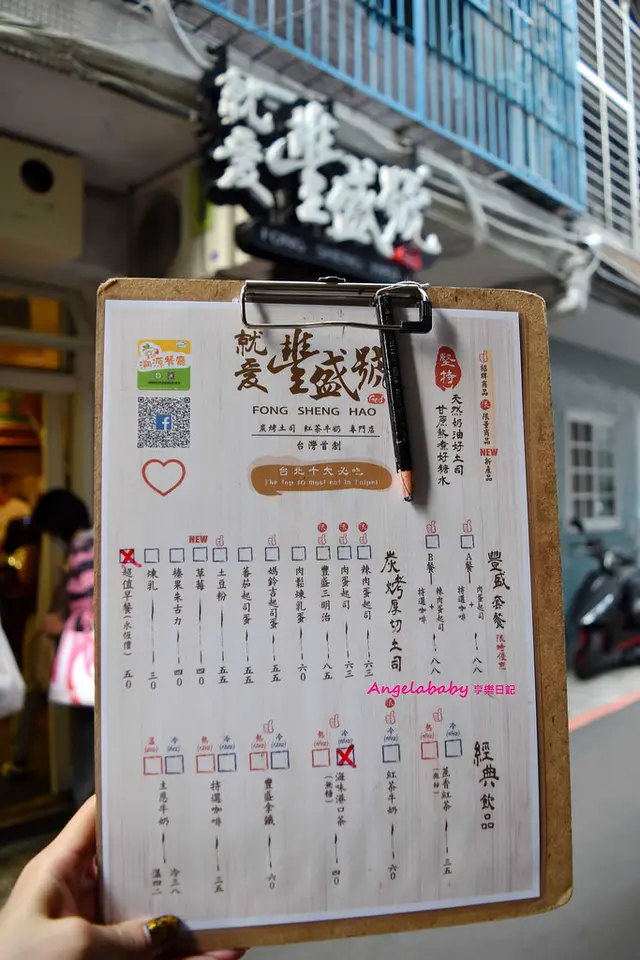 就愛 豐盛號
FONG SHENG HAO
溯源餐廳
就愛豐盛號
FONG SHENG HAO
炭烤土司 紅茶牛奶 專門店
台灣首創
台北十大必吃
The Top 10 Must eat in Taipei
堅持
天然奶油好土司
甘蔗熬煮好糖水
招牌商品
限 限量商品
NEW 新產品
豐盛套餐 限時優惠
A餐 肉蛋起司+特選咖啡 八八
B餐 辣肉蛋起司+特選咖啡 八八
炭烤厚切土司
限 辣肉蛋起司 六三
限 肉蛋起司 六三
限 豐盛三明治 八五
肉鬆煉乳蛋 六〇
媽鈴吉起司蛋 五五
蕃茄起司蛋 五五
土豆粉 五五
NEW 草莓 四〇
榛果朱古力 四〇
煉乳 三〇
超值早餐(永恆價) 五〇
經典飲品
冷 熱 蔗香紅茶(無糖) 三五
限 冷 紅茶牛奶 六〇
冷 熱 海味港口茶(無糖) 四〇
冷 熱 豐盛拿鐵 六〇
冷 熱 特選咖啡 三五
冷 溫 土慝牛奶 冷三八 溫四二
Angelababy 享樂日記